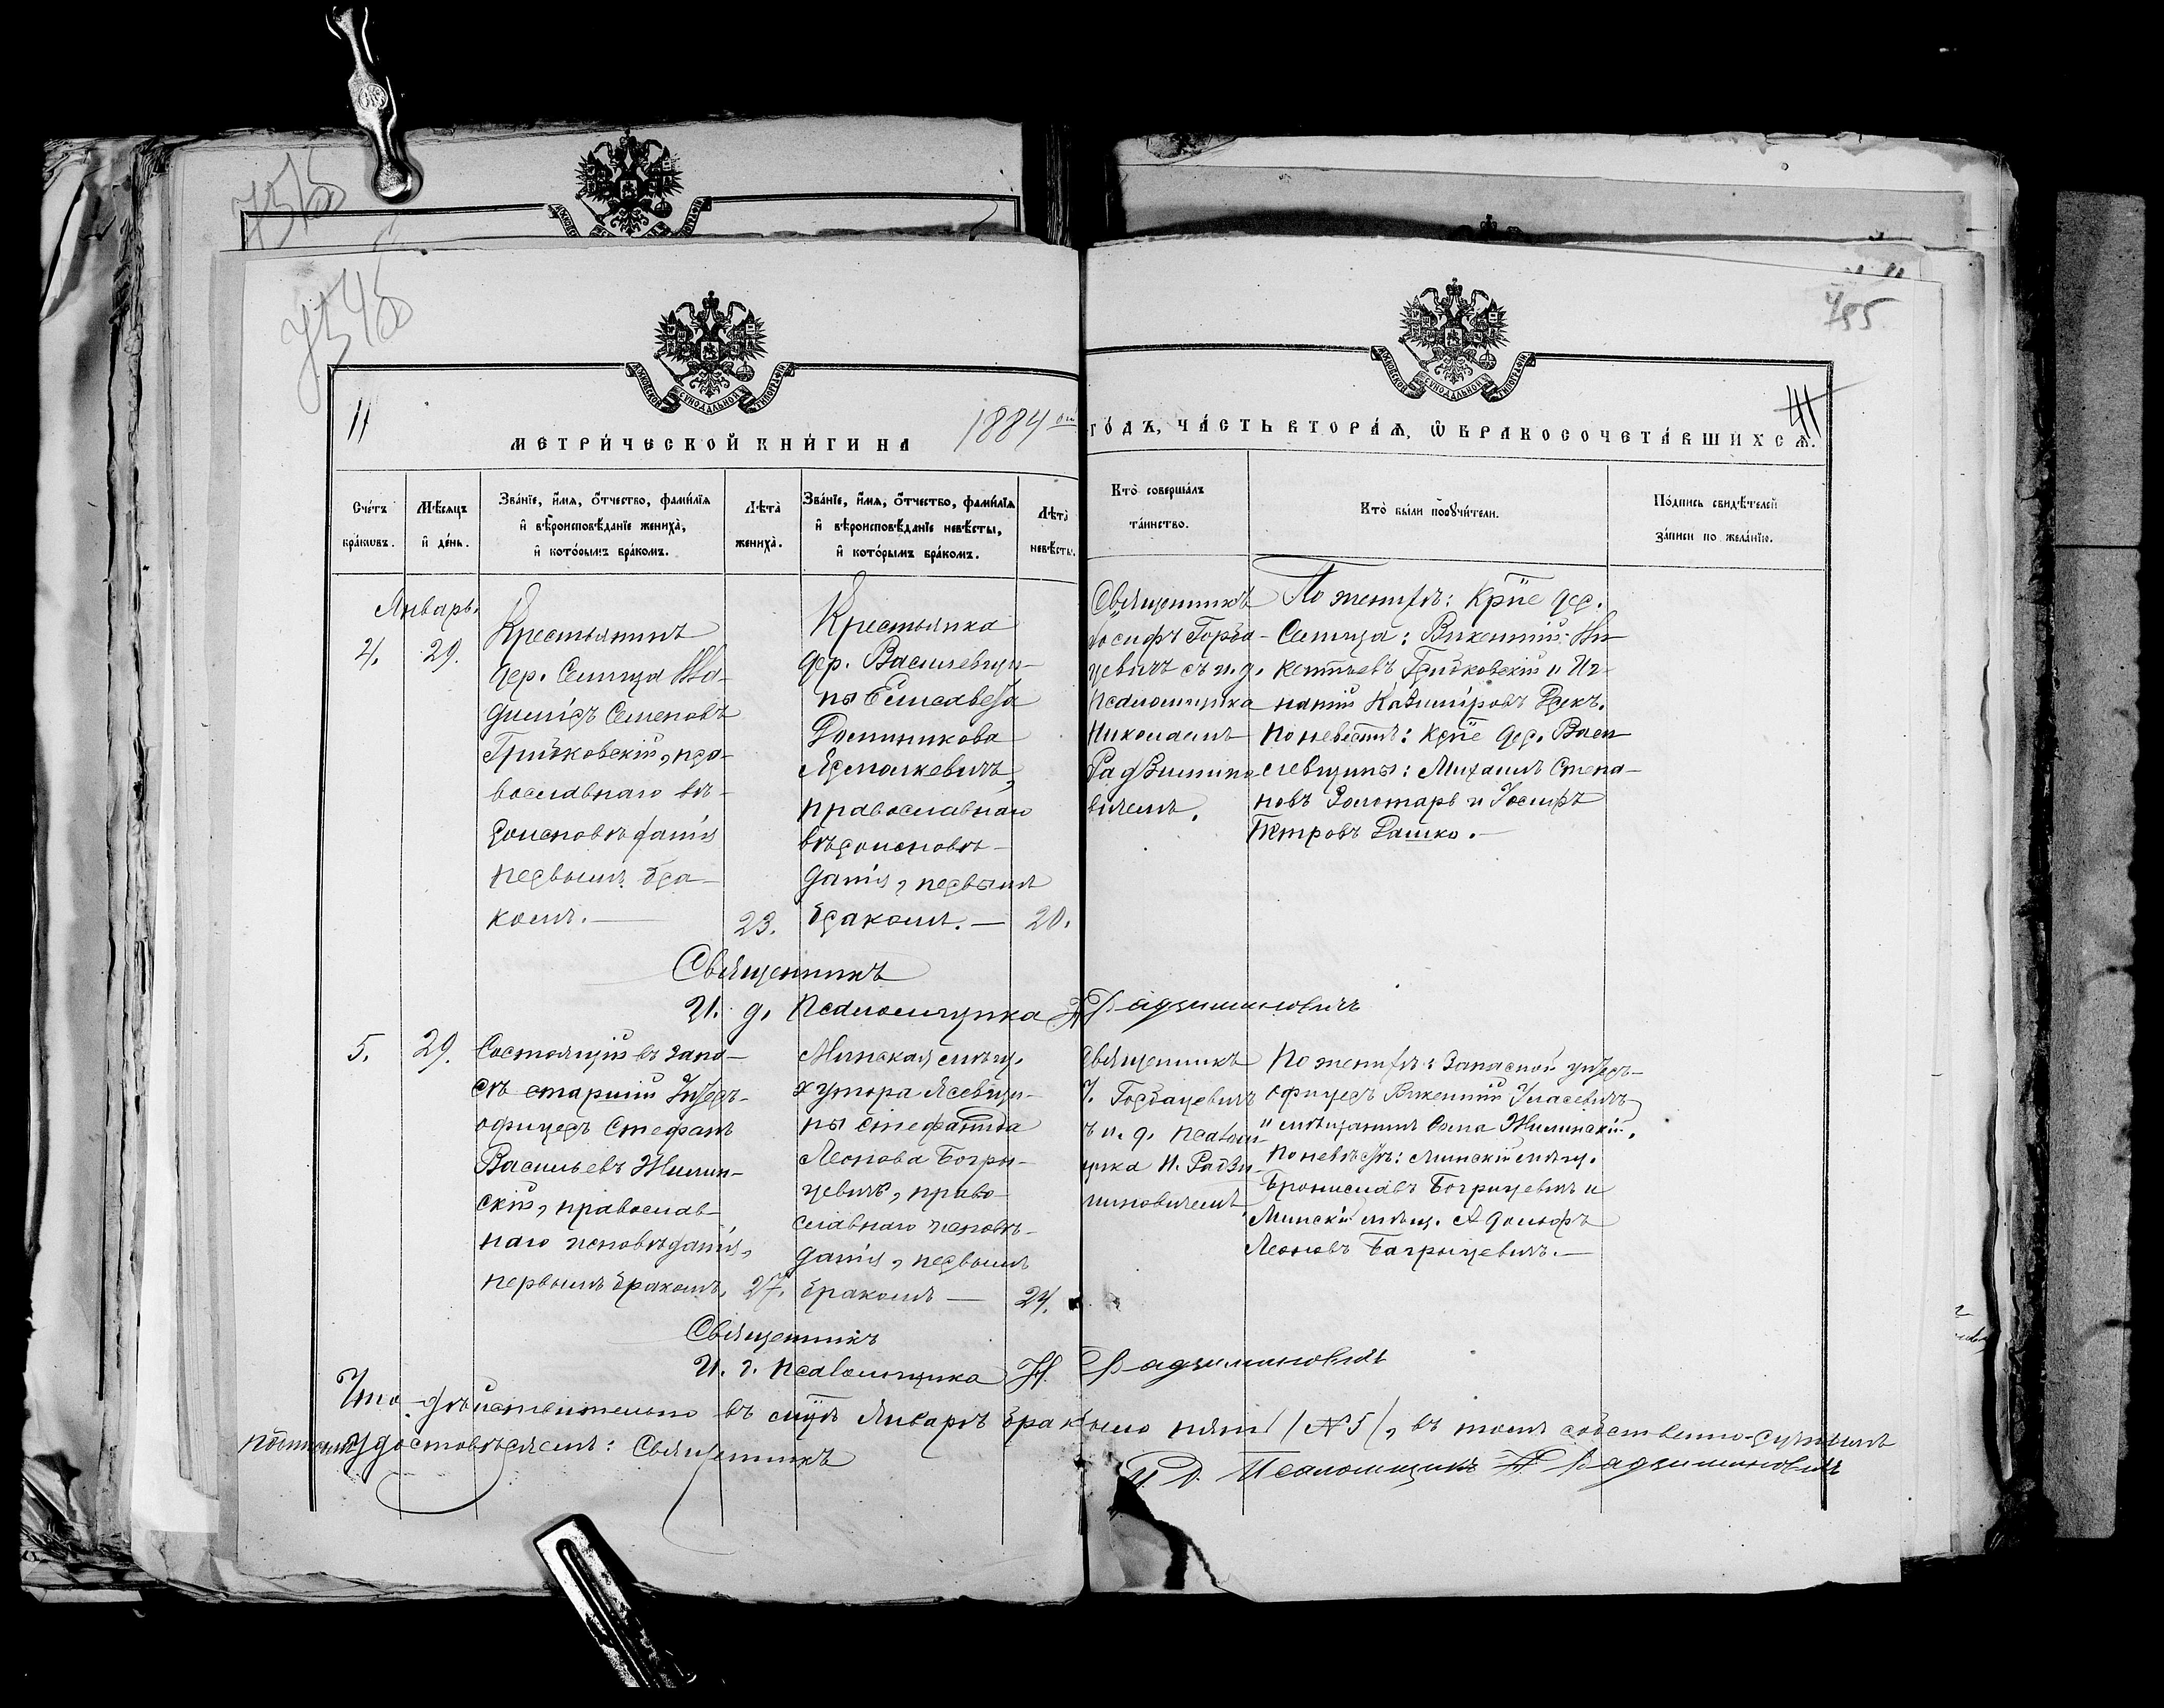 455
11
41
МЕТРИ́ЧЕСКОЙ КНИ́ГИ НА 1884 ГО́ДЪ, ЧА́СТЬ ВТОРА́Я, Ѡ БРАКОСОЧЕТА́ВШИХСЯ.
Сче́тъ бра́ковъ.
Мѣ́сяцъ и де́нь.
Зва́нїе, и́мя, о́тчество, фами́лїя
и вѣроисповѣ́данїе жениха̀,
и кото́рымъ бра́комъ.
Лѣта̀
жениха̀.
Зва́нїе, и́мя, о́тчество, фами́лїя
и вѣроисповѣ́данїе невѣ́сты,
и кото́рымъ бра́комъ.
Лѣта̀
невѣ́сты.
Кто̀ соверша́лъ
та́инство.
Кто̀ бы́ли поручи́тели.
По́дпись свидѣ́телей
за́писи по жела́нїю.
Январь.
4.
29.
Крестьянинъ
дер. Селища
Семеновъ
Грибковскій, пра-
вославнаго вѣ-
роисповѣданія
первымъ бра-
комъ. —
23.
Крестьянка
дер. Василевщи-
ны Елисавета
Доминикова
Ярмолкевичъ,
православнаго
вѣроисповѣ-
данія, первымъ
бракомъ. —
20.
Священникъ
Іосифъ Горба-
цевичъ съ и. д.
псаломщика
Николаемъ
Радзимино-
вичемъ.
По женихѣ: Кр̃не дер.
Селища: Викентій Ви-
кентьевъ Грибковскій и Иг-
натій Казиміровъ
По невѣстѣ: Кр̃не дер. Васи-
левщины: Михаилъ Степа-
новъ Золотарь и Іосифъ
Петровъ Рашко. —
Священникъ
И. д. псаломщика Н Радзиминовичъ
5.
29.
Состоящій въ запа-
сѣ старшій Унтеръ-
офицеръ Стефанъ
Васильевъ Жилин-
скій, православ-
наго исповѣданія,
первымъ бракомъ.
27.
Минская мѣщ.
хутора Ясевщи-
ны Стефанида
Леонова Богры-
цевичъ, право-
славнаго исповѣ-
данія, первымъ
бракомъ —
24.
Священникъ
І. Горбацевичъ
съ и. д. псалом-
щика Н. Радзи-
миновичемъ.
По женихѣ: Запасной унтеръ-
офицеръ Викентій Уласевичъ
и мѣщанинъ Ѳома Жилинскій.
По невѣстѣ: Минскій мѣщ.
Брониславъ Богрыцевичъ и
Минскій мѣщ. Адольфъ
Леоновъ Багрыцевичъ. —
Священникъ
И. д. псаломщика Н. Радзиминовичъ
Что дѣйствительно въ мц̃ѣ Январѣ браковъ было пять (№ 5), въ томъ собственно-ручнымъ
подписомъ удостовѣряемъ: Священникъ
И. д. Псаломщикъ Н Радзиминовичъ